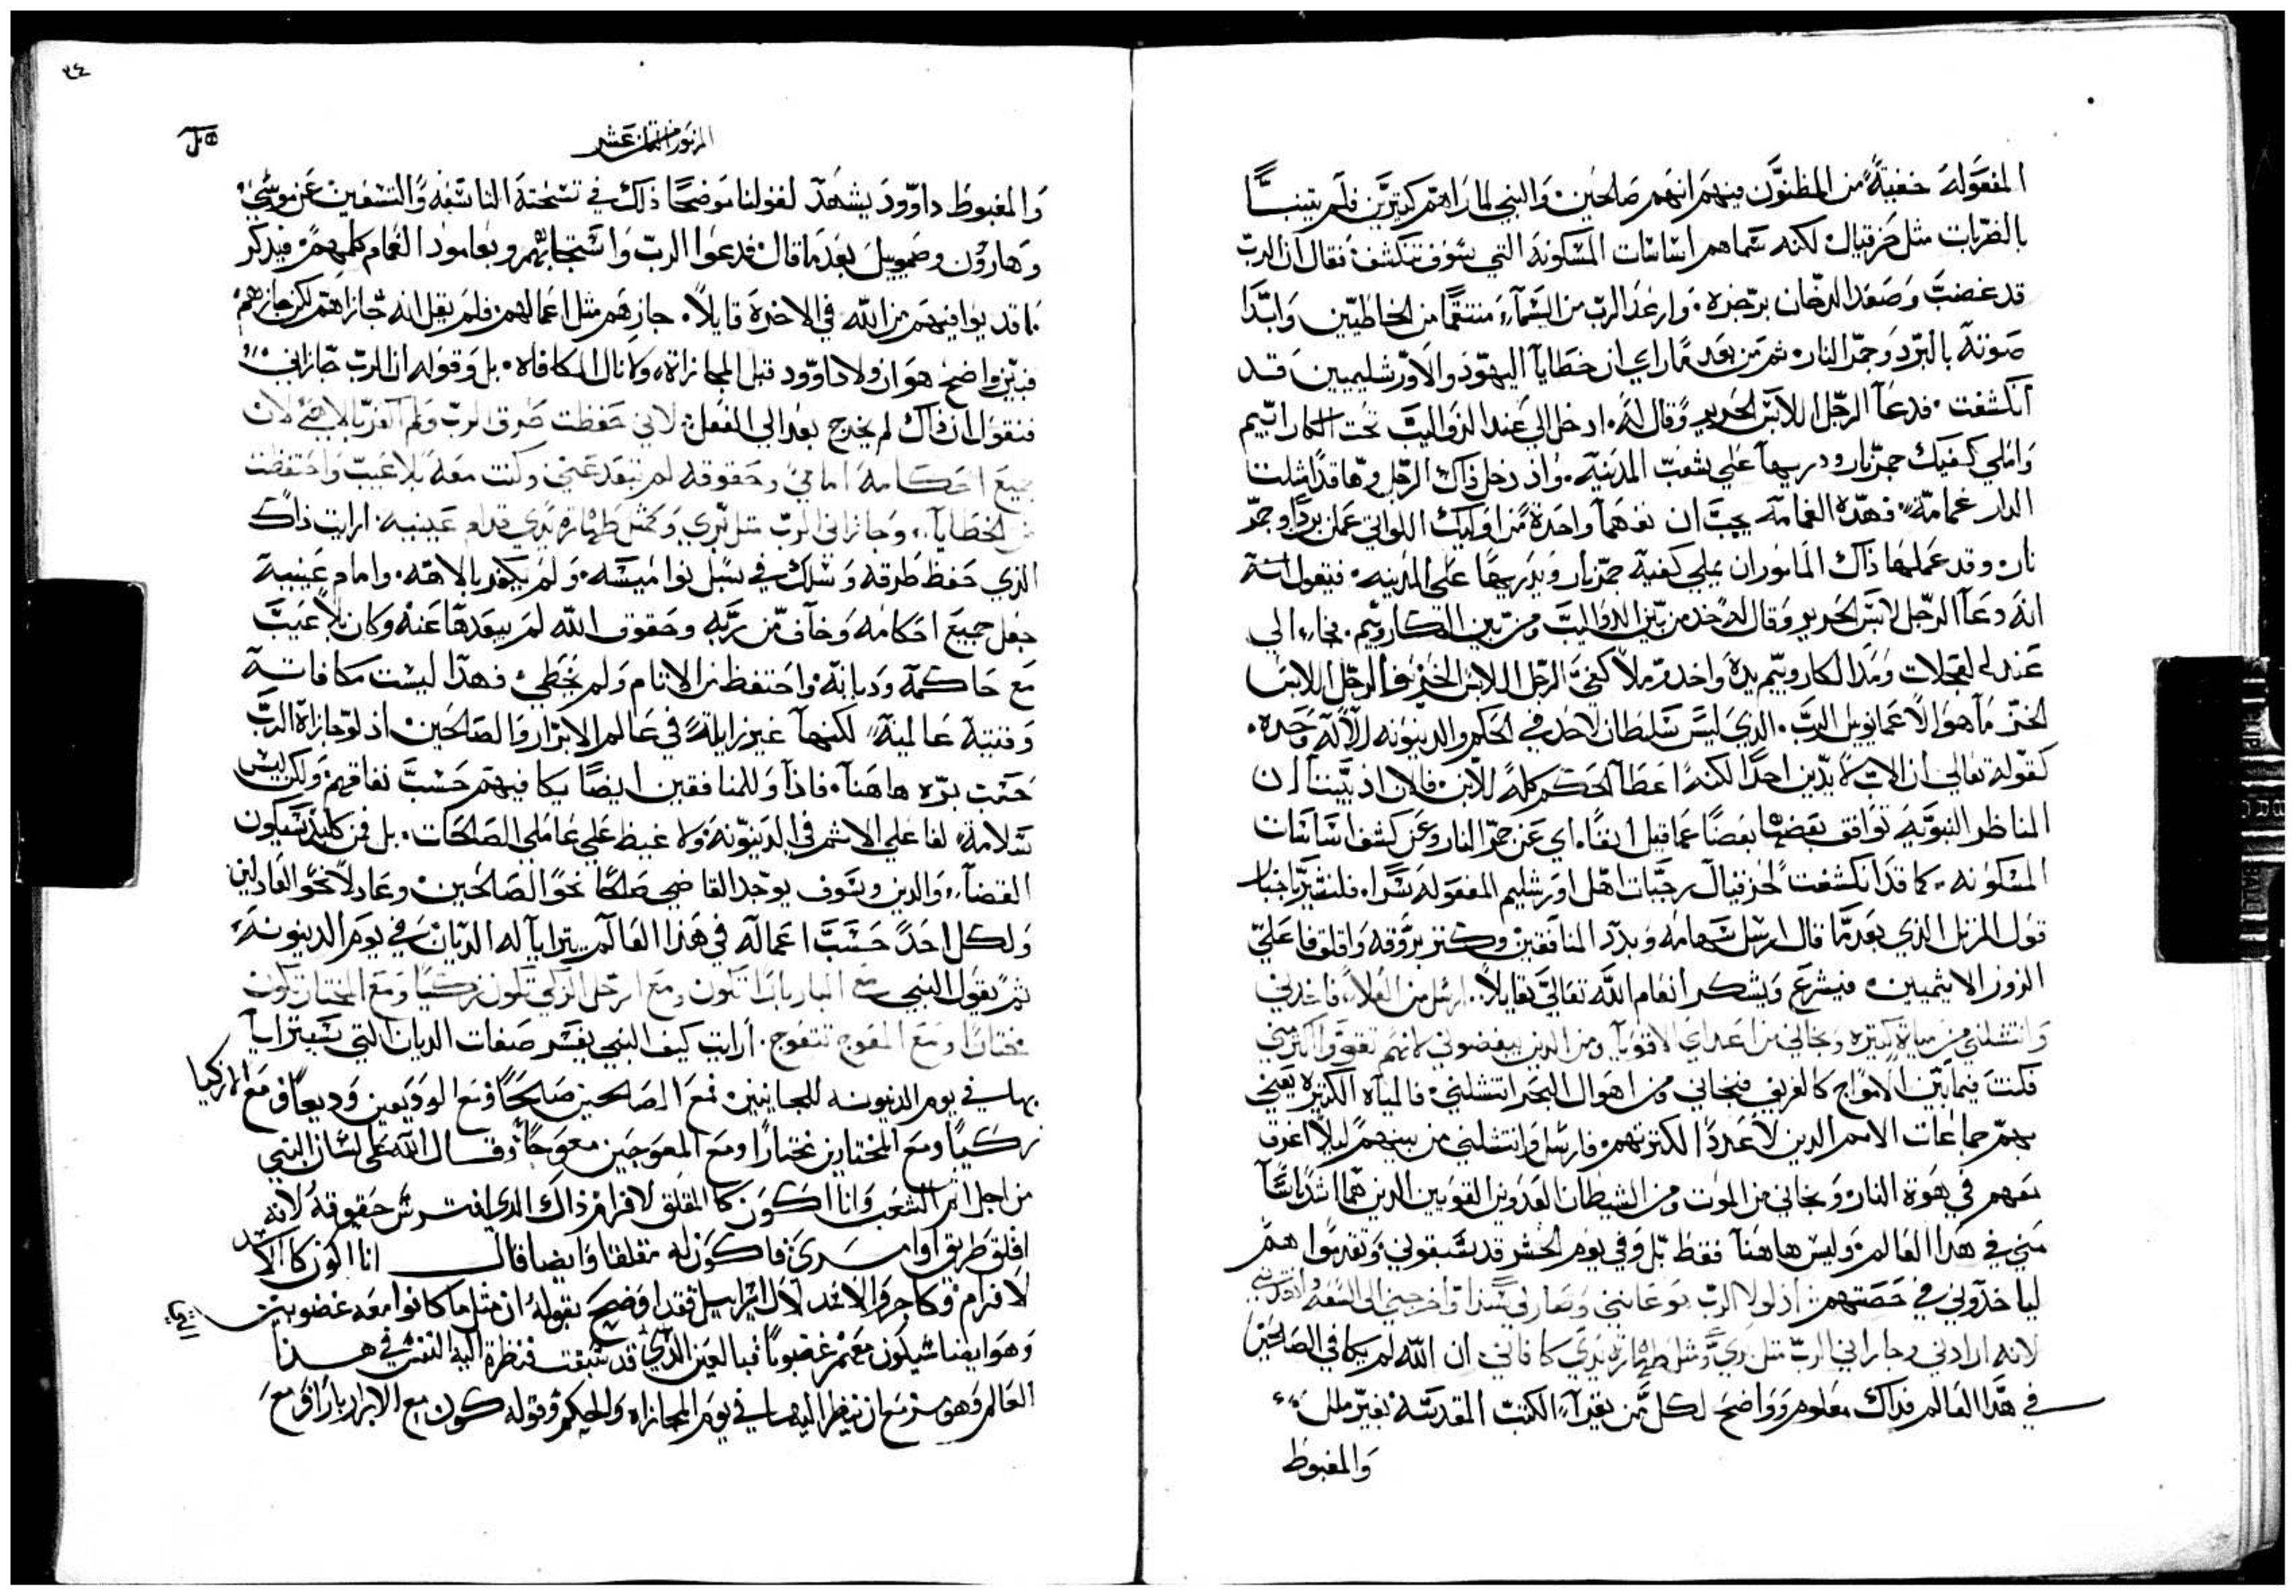 المفعوله خفية من المظنون فيهم انهم صالحين والنبي لما راهم كثيرين فلم يتنبا
بالضربات مثل حزقيال لكنه سماهم اساسات المسكونة التي سوف تنكشف فقال ان الرب
قد غضب وصعد الدخان برجزه. وارعد الرب من السماء منتقما من الخاطيين وابدا
صوته بالبرد وجمر النار ثم من بعد ما راي ان خطايا اليهود والاورشليميين قد
انكشفت. فدعا الرجل اللابس الحرير وقال له. ادخل الي عند الدواليب تحت الكاراتيم
واملي كفيك جمر نار ودريها علي شعب المدينة. واذ دخل ذاك الرجل وها قد امتلت
الدار غمامة فهده الغمامة يجب ان نفهما واحدة من اوليك اللواتي عملن بردا وجمر
نار وقد عملها ذاك المامور ان يملي كفيه جمر نار ويدريها علي المدينه. فيقول
انه دعا الرجل لابس الحرير وقال له خد من بين الدواليب ومن بين الكاروبيم. فجاء الي
عند العجلات ومد الكاروبيم يده واخد وملا كفي الرجل اللابس الخز فالرجل اللابس
الخز ما هو الا عمانويل الرب. الذي ليس سلطان لاحد في الحكم والدينونه الا له وحده.
كقوله تعالي ان الاب لا يدين احدا لكنه اعطا الحكم كله للابن. فالان اذ تبيننا ان
المناظر النبويه توافق بعضها بعضا عما قيل انفا. اي عن جمر النار وعن كشف اساسات
المسكونه. كما قد انكشفت لحزقيال رجسات اهل اورشليم المفعوله سرا. فلنفسر اخبار
قول المرتل الذي بعد ما قال ارسل سهامه وبدد المنافقين وكثر بروقه واقلق فاعلي
الزور الاثيميين. فيشرع ويشكر انعام الله تعالي قايلا. ارسل من العلاء فاخدني
وانتشلني من مياة كثيرة ونجاني من اعداي الاقويا ومن الدين يبغضوني لانهم تقووا اكثر مني
فكنت فيما بين الامواج كالغريق فنجاني ومن اهوال البحر انتشلني. فالمياه الكثيرة يعني
بهم جماعات الامم الدين لا عددا لكثرتهم. فارسل وانتشلني من بينهم ليلا اغرق
معهم في هوة النار ونجاني من الموت ومن الشيطان العدوين القويين الدين هما اشد باسا
مني في هدا العالم. وليس هاهنا فقط بل وفي يوم الحشر قد سبقوني وتقدموا هم
لياخدوني في حصتهم. اذ لولا الرب هو عانني وصار لي سندا واخرجني الي السعة وانقدني
لانه ارادني وجاراني الرب مثل بري ومثل طهارة يدي كافاني. ان الله لم يكافي الصالحين
في هدا العالم فداك معلوم وواضح لكل من يقرا الكتب المقدسة بغير ملل.
والمغبوط
٣٤
المزمور الثمان عشر
والمغبوط داوود يشهد لقولنا موضحا ذلك في تسبحته التاسعه والتسعين عن موسي
وهارون وصمويل بعد ما قال قدعوا الرب واستجابهم وبعامود الغمام كلمهم فيدكر
ما قد يوافيهم من الله في الاخرة قايلا. جازهم مثل اعمالهم. فلم يقل انه جازاهم لكن جازهم
فبين واضح هو ان ولا داوود قبل المجازاة ولا نال المكافاه. بل وقوله ان الرب جازاني
فنقول ان ذاك لم يخرج بعد الي الفعل. لاني حفظت طرق الرب ولم اكفر بالاهي لان
جميع احكامه امامي وحقوقه لم تبعد عني وكنت معه بلا عيب واحتفظت
من الخطايا. وجازاني الرب مثل بري وكمثل طهارة يدي قدام عينيه. ارايت ذاك
الذي حفظ طرقه وسلك في سبل نواميسه. ولم يكفر بالاهه. وامام عينيه
جعل جميع احكامه وخاف من ربه وحقوق الله لم يبعدها عنه وكان بلا عيب
مع حاكمه وديانه واحتفظ من الاتام ولم يخطي. فهدا ليست مكافاته
وقتية عالمية لكنها غير زايلة في عالم الابرار والصالحين. اذ لو جازاة الرب
حتمت بره هاهنا. فاذا وللمنافقين ايضا يكافيهم حسب نفاقهم ولكن ليس
سلامة لفاعلي الاثم في الدينونه ولا غيظ علي عاملي الصالحات. بل فمن كليد سيكون
القضاء والدين وسوف يوجد القاضي صالحا نحو الصالحين وعادلا نحو العادلين
ولكل احد حسب اعماله في هدا العالم يترايا له الديان في يوم الدينونه
ثم يقول النبي مع البار بارا تكون ومع الرجل الزكي تكون زكيا ومع المختار تكون
مختارا ومع المعوج تتعوج. ارايت كيف النبي يفسر صفات الديان التي سيترايا
بها في يوم الدينونه للمجانين. فمع الصالحين صالحا ومع الوديعين وديعا ومع الازكيا
زكيا ومع المختارين مختارا ومع المعوجين معوجا وقال الله علي لسان النبي
من اجل اثم الشعب وانا اكون كالمقلق لافرام ذاك الدي افترس حقوقه لانه
اقلق طريق اوامري. فاكون له مقلقا وايضا قال انا اكون كالاسد
لافرام وكاجرو الاسد لال اسراييل فقد اوضح بقوله ان مثل ما كانوا معه غضوبين
وهو ايضا سيكون معهم غضوبا فبالعين الدي قد سبقت فنظرة اليه النفس في هدا
العالم وهو مزمع ان ينظر اليها في يوم المجازاه والحكم وقوله كون مع الابرار بارا ومع